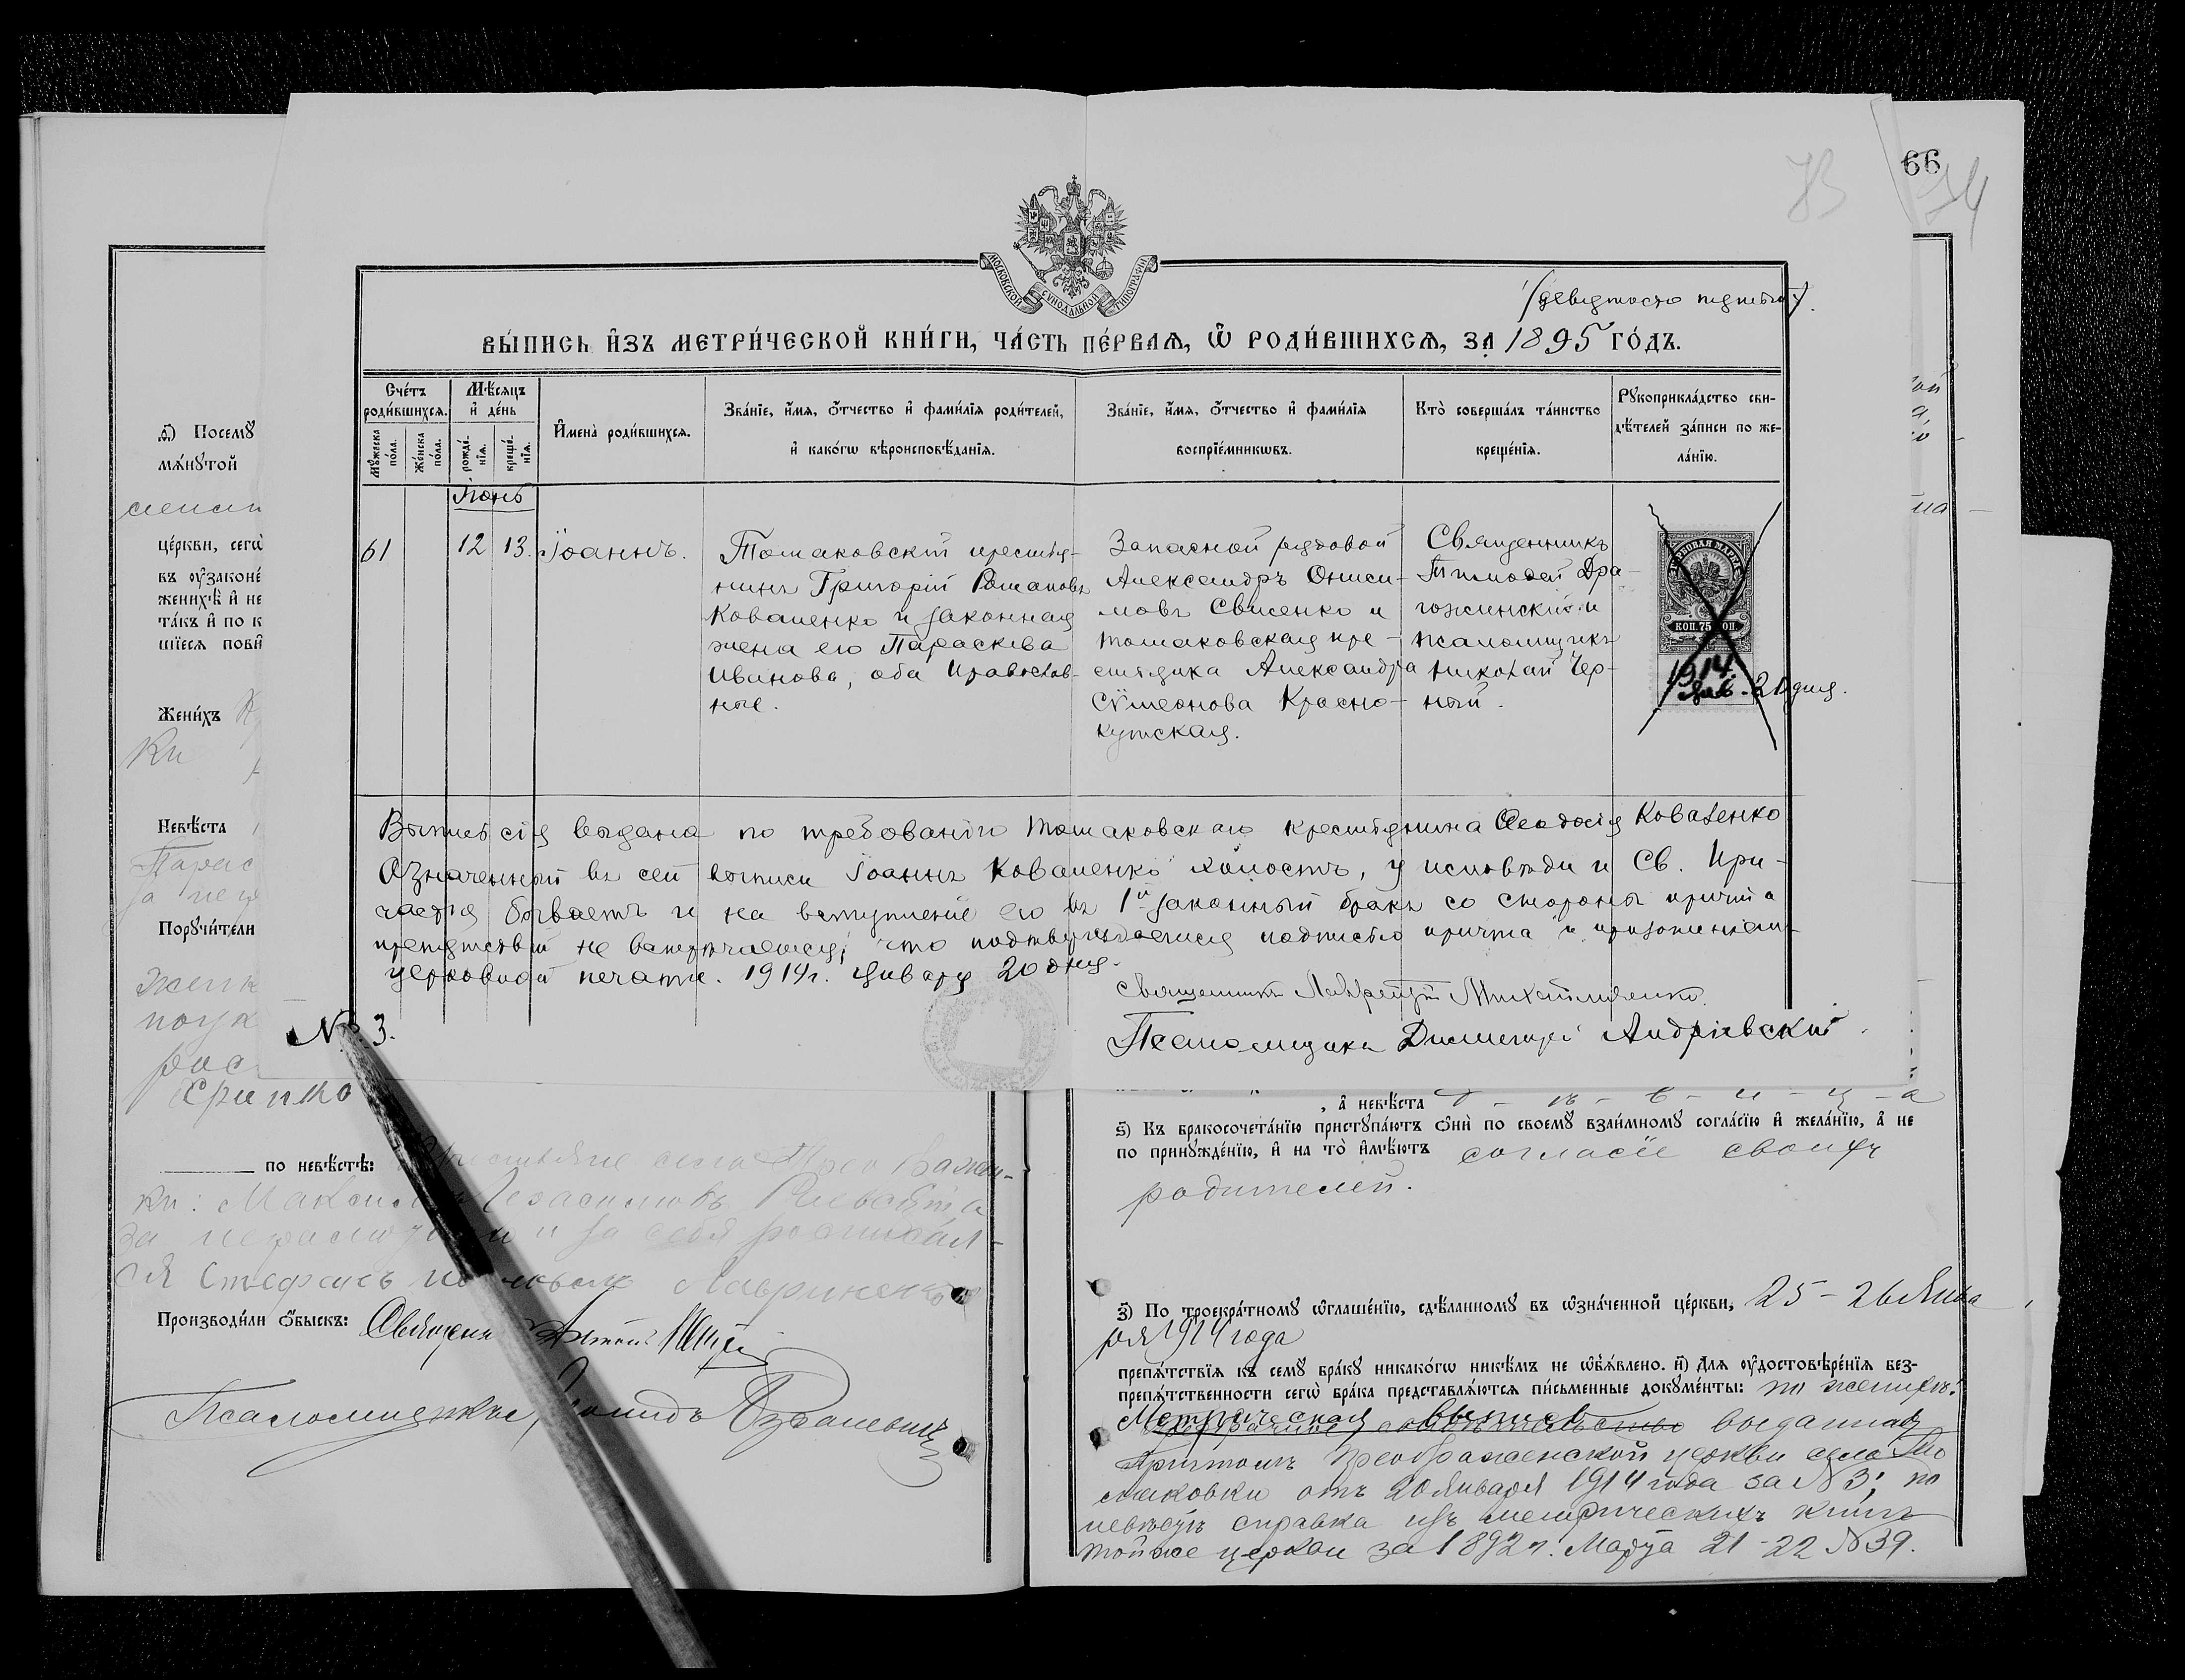 66
73
74
МОСКОВСКОЙ СѴНОДАЛЬНОЙ ТИПОГРАФІИ
(девяносто пятый).
ВЫ́ПИСЬ И҆ЗЪ МЕТРИ́ЧЕСКОЙ КНИ́ГИ, ЧА́СТЬ ПЕ́РВАѦ, Ѽ РОДИ́ВШИХСѦ, ЗА 1895 ГО́ДЪ.
Сче́тъ роди́вшихсѧ.
Мѣ́сѧцъ и҆ де́нь
Мꙋ́жеска по́ла.
Же́нска по́ла.
рожде́нїѧ.
креще́нїѧ.
И҆мена̀ роди́вшихсѧ.
Зва́нїе, и҆́мѧ, ѻ҆́тчество и҆ фами́лїѧ роди́телей,
и҆ како́гѡ вѣроисповѣ́данїѧ.
Зва́нїе, и҆́мѧ, ѻ҆́тчество и҆ фами́лїѧ
воспрїе́мникѡвъ.
Кто̀ соверша́лъ та́инство
креще́нїѧ.
Рꙋкоприкла́дство сви-
дѣ́телей за́писи по же-
ла́нїю.
Іюнь
61 12 13. Іоаннъ.
Томаковскій крестья-
нинъ Григорій Романовъ
Коваленко и законная
жена его Параскева
Иванова, оба православ-
ные.
Запасной рядовой
Александръ Ониси-
мовъ Свисенко и
томаковская кре-
стьянка Александра
Сѵмеонова Красно-
кутская.
Священникъ
Тимофей Дра-
гожинскій и
псаломщикъ
Николай Чер-
ный.
ГЕРБОВАЯ МАРКА
КОП. 75 КОП.
1914.
Янв. 20 дня.
Выпись сія выдана по требованію томаковскаго крестьянина Ѳеодосія Коваленко
Означенный въ сей выписи Іоаннъ Коваленко холостъ, у исповѣди и Св. При-
частія бываетъ и на вступленіе его въ 1й законный бракъ со стороны причта
препятствій не встрѣчается; что подтверждается подписью причта и приложеніемъ
церковной печати. 1914г. Января 20 дня.
Священникъ Лаврентій Михайличенко.
Псаломщикъ Димитрій Андріевскій.
№ 3.
ѻ҃) Посемꙋ̀
мѧ́нꙋтой
це́ркви, сегѡ̀
въ ᲂу҆законе́
женихѣ̀ и҆ не
та́къ и҆ по к
шїесѧ пови́
Жени́хъ
ки
Невѣ́ста
Парас
за не
Порꙋчи́тели
жени
поук
рос
Срипко
по невѣ́стѣ: Крестьяне села
ки: Максимъ Герасимовъ
за неграмотныхъ и за себя росписал-
ся Стефанъ Лавриненко
Производи́ли ѻ҆́быскъ: Священ
Псаломщикъ
, а҆ невѣ́ста д - ѣ - в - и - ц - а
ѕ҃) Къ бракосочета́нїю пристꙋпа́ютъ ѻ҆нѝ по своемꙋ̀ взаи́мномꙋ согла́сїю и҆ жела́нїю, а҆ не
по принꙋжде́нїю, и҆ на то̀ и҆мѣ́ютъ согласіе своихъ
родителей.
з҃) По троекра́тномꙋ ѡ҆глаше́нїю, сдѣ́ланномꙋ въ ѡ҆зна́ченной це́ркви, 25 - 26 Янва
ря 1914 года
препѧ́тствїѧ къ семꙋ̀ бра́кꙋ никако́гѡ никѣ́мъ не ѡ҆б̾ѧ́влено. и҃) Длѧ ᲂу҆достовѣре́нїѧ без-
препѧ́тственности сегѡ̀ бра́ка представлѧ́ютсѧ пи́сьменные докꙋме́нты: по женихѣ:
Метрическая выпись выданная
Причтомъ Преображенской церкви села То
маковки отъ 20 Января 1914 года за № 3; по
невѣстѣ справка изъ метрическихъ книгъ
той же церкви за 1892 г. Марта 21-22 № 39.